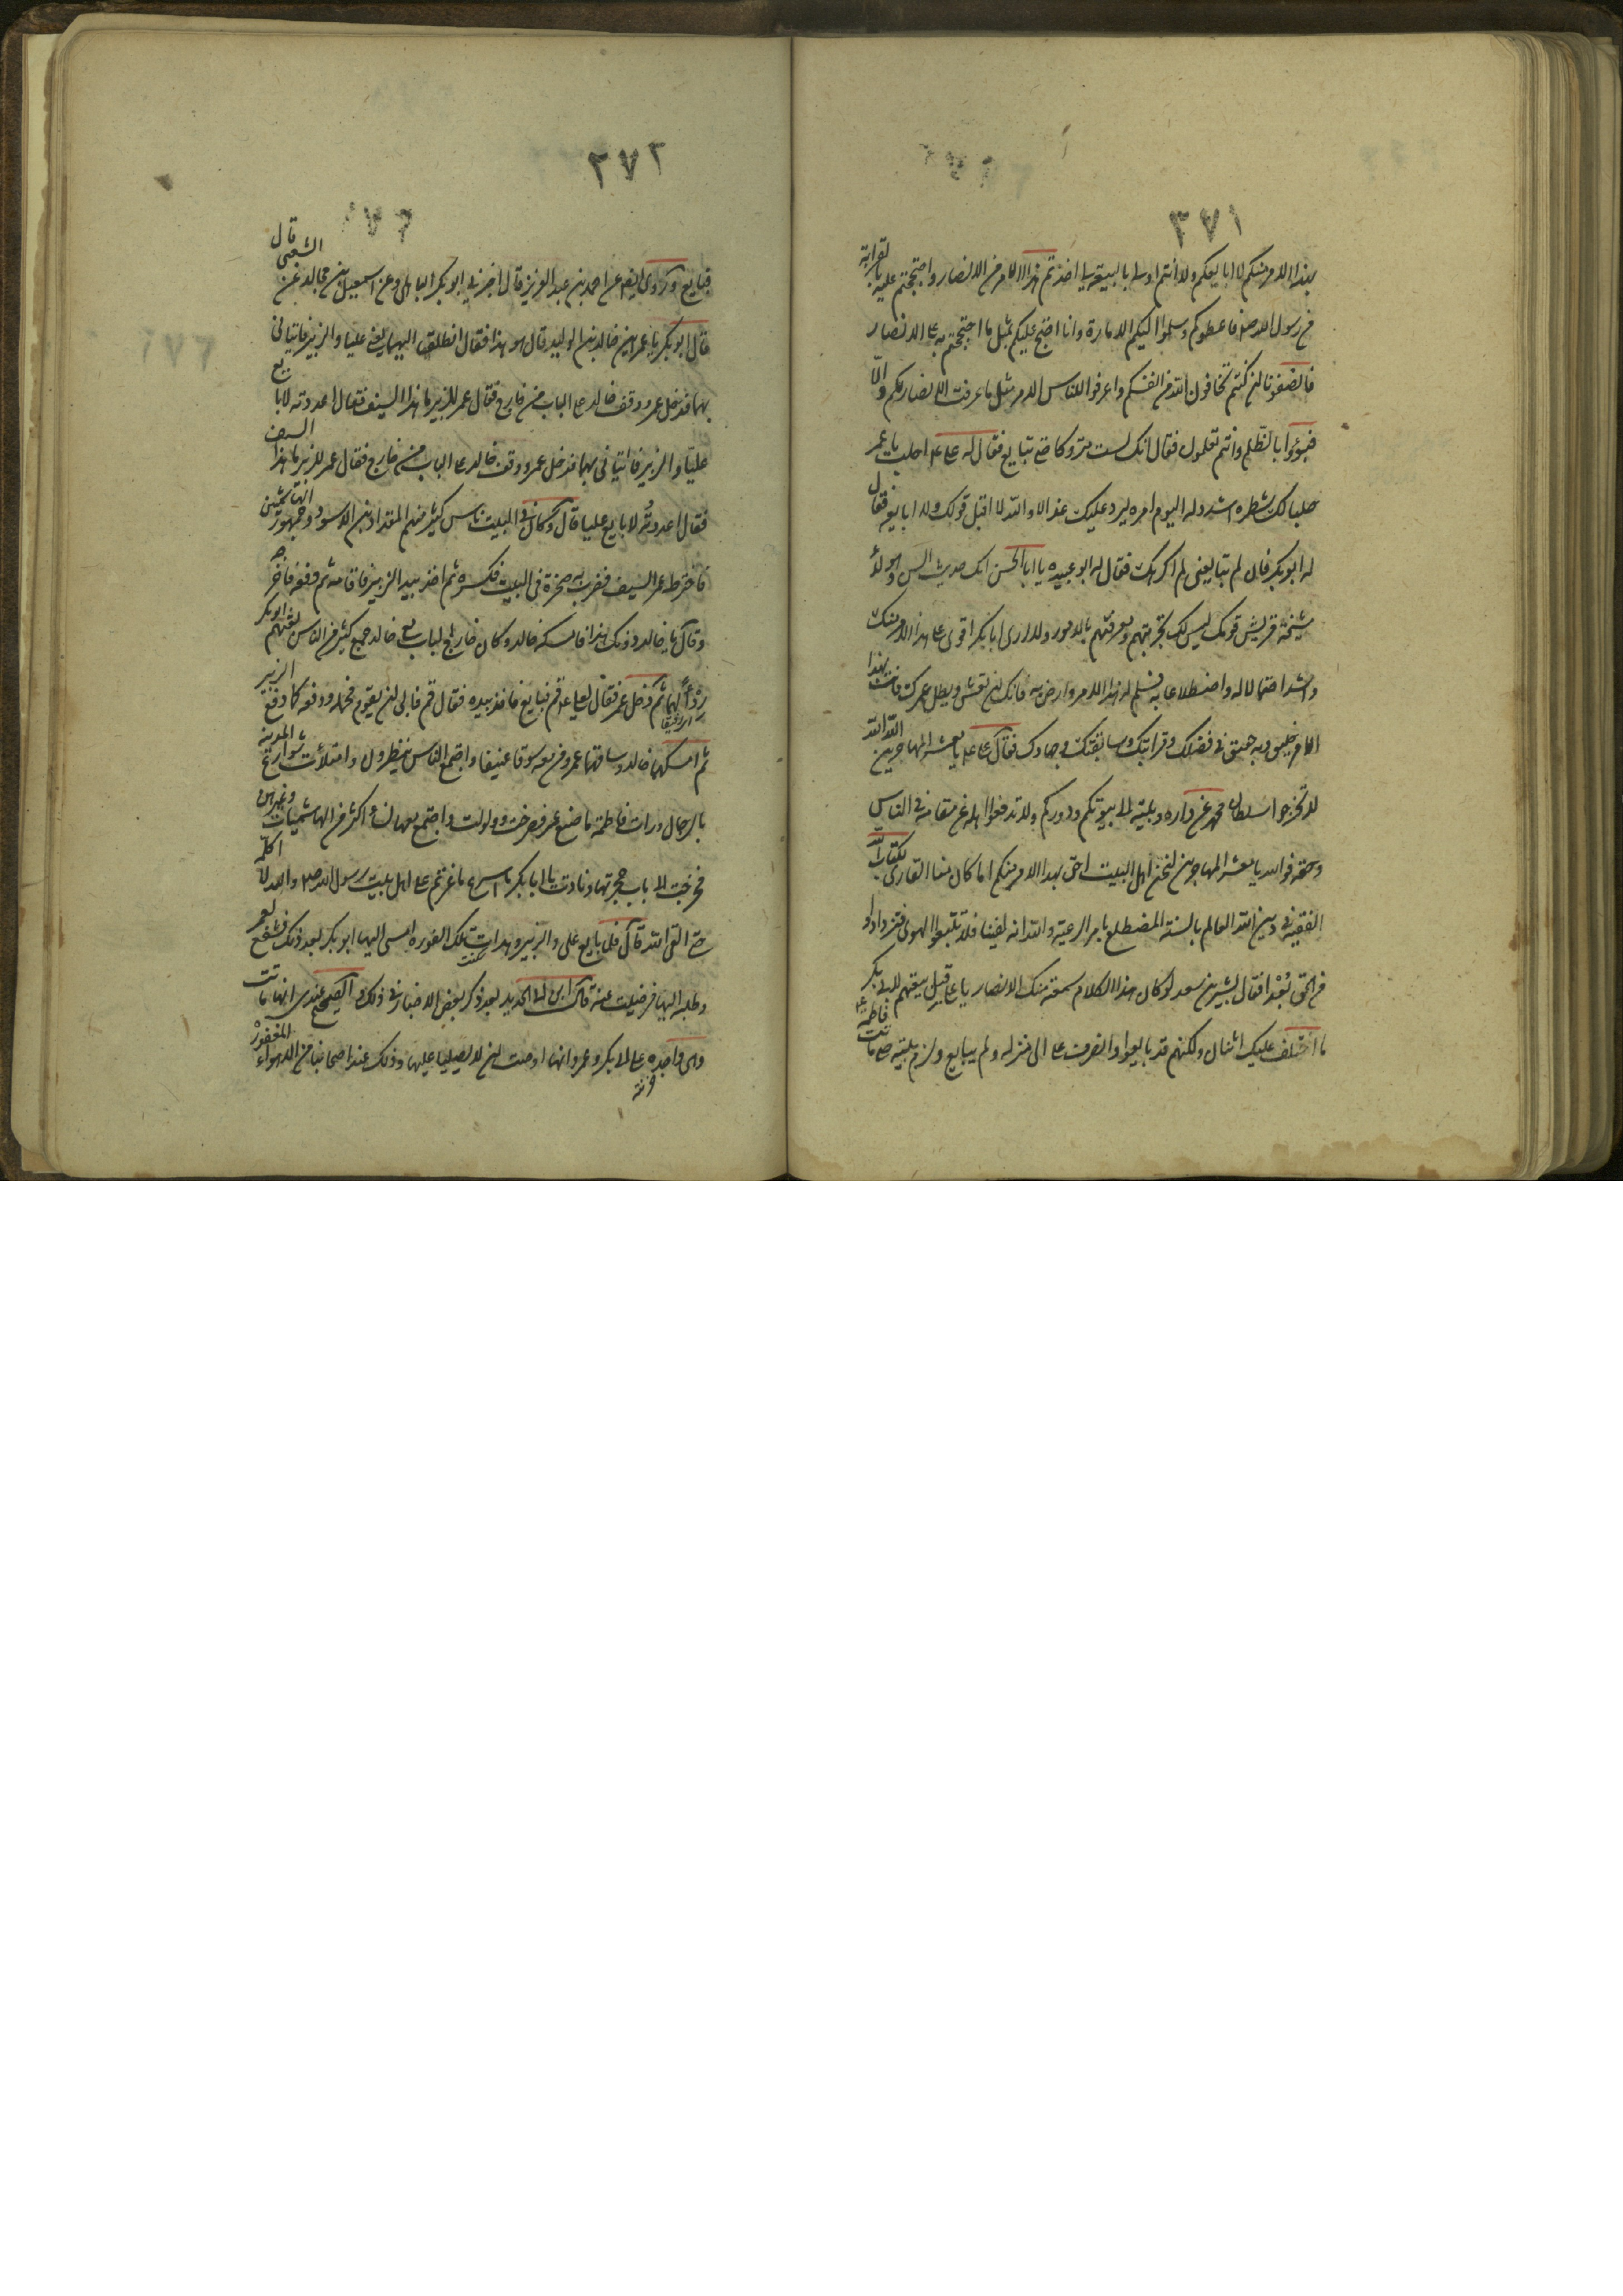 ٣٧١
بهذا الامر منكم لا ابايعكم ولا انتم اولى بالبيعة لي اخذتم هذا الامر من الانصار واحتججتم عليهم بالقرابة
من رسول الله ص فاعطوكم وسلموا اليكم الامارة وانا احتج عليكم بمثل ما احتججتم به على الانصار
فانصفونا ان كنتم تخافون الله من انفسكم واعرفوا للناس الامر مثل ما عرفت الانصار لكم والّا
فبوؤا بالظلم وانتم تعلمون فقال انك لست متروكا حتى تبايع فقال له علي ع احلب يا عمر
حلبا لك شطره اشدد له اليوم امره ليرد عليك غدا الا والله لا اقبل قولك ولا ابايعه فقال
له ابوبكر فان لم تبايعني لم اكرهك فقال له ابو عبيده يا ابا الحسن انك حديث السن وهؤلاء
مشيخة قريش قومك ليس لك تجربتهم ومعرفتهم بالامور ولا ارى ابابكر الا اقوى على هذا الامر منك
واشد احتمالا له واضطلاعا به فسلم له هذا الامر وارض به فانك ان تعش ويطل عمرك فانت بهذا
الامر خليق وبه حقيق في فضلك وقرابتك وسابقتك وجهادك فقال علي ع يا معشر المهاجرين الله الله
لا تخرجوا سلطان محمد عن داره وبيته الى بيوتكم ودوركم ولا تدفعوا اهله عن مقامه في الناس
وحقه فوالله يا معشر المهاجرين لنحن اهل البيت احق بهذا الامر منكم اما كان منا القارئ لكتاب الله
الفقيه في دين الله العالم بالسنة المضطلع بامر الرعية والله انه لفينا فلا تتبعوا الهوى فتزدادوا
من الحق بُعْدا فقال بشير بن سعد لو كان هذا الكلام سمعته منك الانصار يا علي قبل بيعتهم لابي بكر
ما اختلف عليك اثنان ولكنهم قد بايعوا وانصرف علي الى منزله ولم يبايع ولزم بيته حتى ماتت فاطمة ع
٣٧٢
فبايع وروى ايضا عن احمد بن عبد العزيز قال اخبرني ابوبكر الباهلي عن اسمعيل بن مجالد عن الشعبي قال
قال ابوبكر يا عمر اين خالد بن الوليد قال هو هذا فقال انطلقا اليهما يعني عليا والزبير فاتياني
بهما فدخل عمر ووقف خالد على الباب من خارج فقال عمر للزبير ما هذا السيف فقال اعددته لابايع
عليّا والزبير فاتياني بهما فدخل عمر ووقف خالد على الباب من خارج فقال عمر للزبير ما هذا السيف
فقال اعددته لابايع عليا قال وكان في البيت ناس كثير منهم المقداد بن الاسود وجمهور الهاشميين
فاخترط عمر السيف فضرب به صخرة في البيت فكسره ثم اخذ بيد الزبير فاقامه ثم دفعه فاخرجه
وقال يا خالد دونك هذا فامسكه خالد وكان خارج الباب مع خالد جمع كثير من الناس بعثهم ابوبكر
رِدْءاً لهما ثم دخل عمر فقال لعلي ع قم فبايع فاخذ بيده فقال قم فابى ان يقوم فحمله ودفعه كما دفع الزبير
ثم امسكهما خالد وساقهما عمر ومن معه سوقا عنيفا واجتمع الناس ينظرون وامتلأت شوارع المدينة
بالرجال ورات فاطمة ما صنع عمر فصرخت وولولت واجتمع معها نساء كثير من الهاشميات وغيرهن
فخرجت الى باب حجرتها ونادت يا ابابكر ما اسرع ما اغرتم على اهل بيت رسول الله ص والله لا اكلم عمر
حتى القى الله قال فلما بايع علي والزبير وهدات تلك الفورة مشى اليها ابوبكر بعد ذلك فشفع لعمر
وطلب اليها فرضيت عنه قال ابن ابي الحديد بعد ذكر بعض الاخبار في ذلك والصحيح عندي انها ماتت
وهي واجده على ابي بكر وعمر وانها اوصت ان لا يصليا عليها وذلك عند اصحابنا من الامور المغفورة